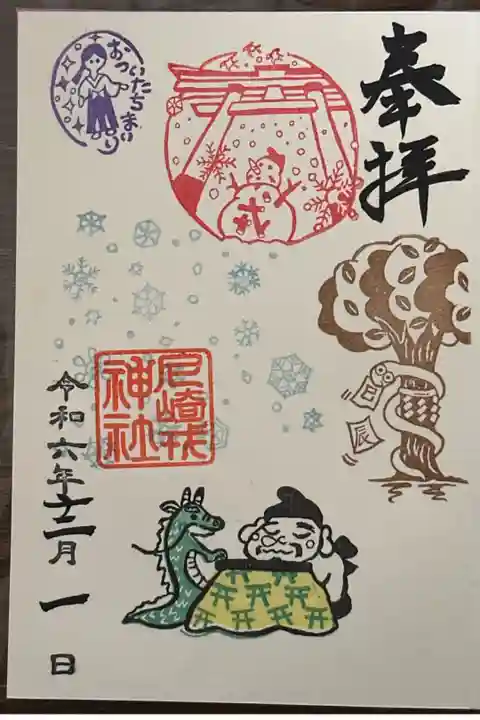 奉拝
おついたちまいり
戎
己
辰
尼崎戎
神社
令和六年十二月一日